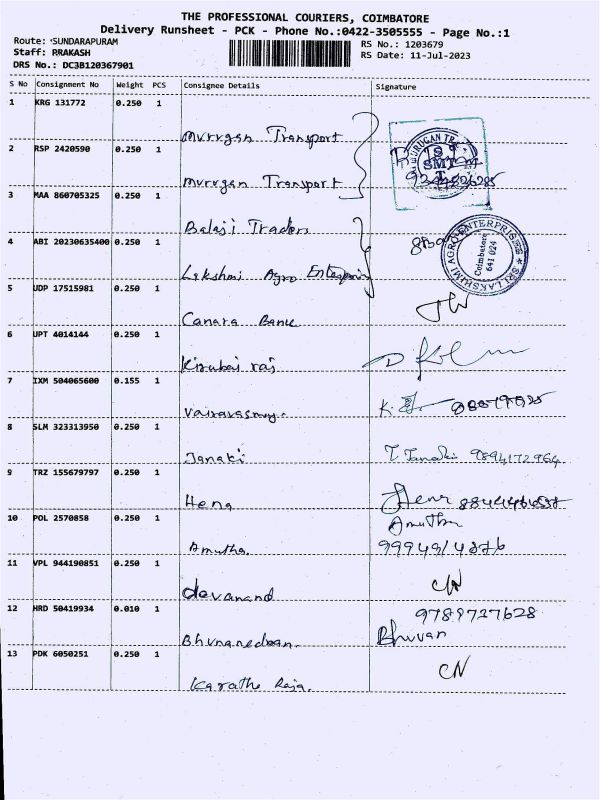 THE PROFESSIONAL COURIERS, COIMBATORE
Delivery Runsheet - PCK - Phone No.:0422-3505555 - Page No.:1
Route: SUNDARAPURAM
RS No.: 1203679
Staff: PRAKASH
RS Date: 11-Jul-2023
DRS No.: DC3B120367901
S No Consignment No Weight PCS Consignee Details Signature
1 KRG 131772 0.250 1
Murugan Transport
2 RSP 2420590 0.250 1
Murugan Transport
3 MAA 860705325 0.250 1
Balaji Traders
4 ABI 20230635400 0.250 1
Lakshmi Agro Enterprises
SRI LAKSHMI AGRO ENTERPRISES
Coimbatore
641 024
5 UDP 17515981 0.250 1
Canara Bank
6 UPT 4014144 0.250 1
Kirubai raj
7 IXM 504065600 0.155 1
Vairavasamy.
8 SLM 323313950 0.250 1
Janaki T Janaki 9894172964
9 TRZ 155679797 0.250 1
Hena Hena
10 POL 2570858 0.250 1
Amutha
Amutha.
11 VPL 944190851 0.250 1
devanand CN
12 HRD 50419934 0.010 1
9789727628
Bhuvanendran. Bhuvan
13 PDK 6050251 0.250 1
Karathe Raja. CN